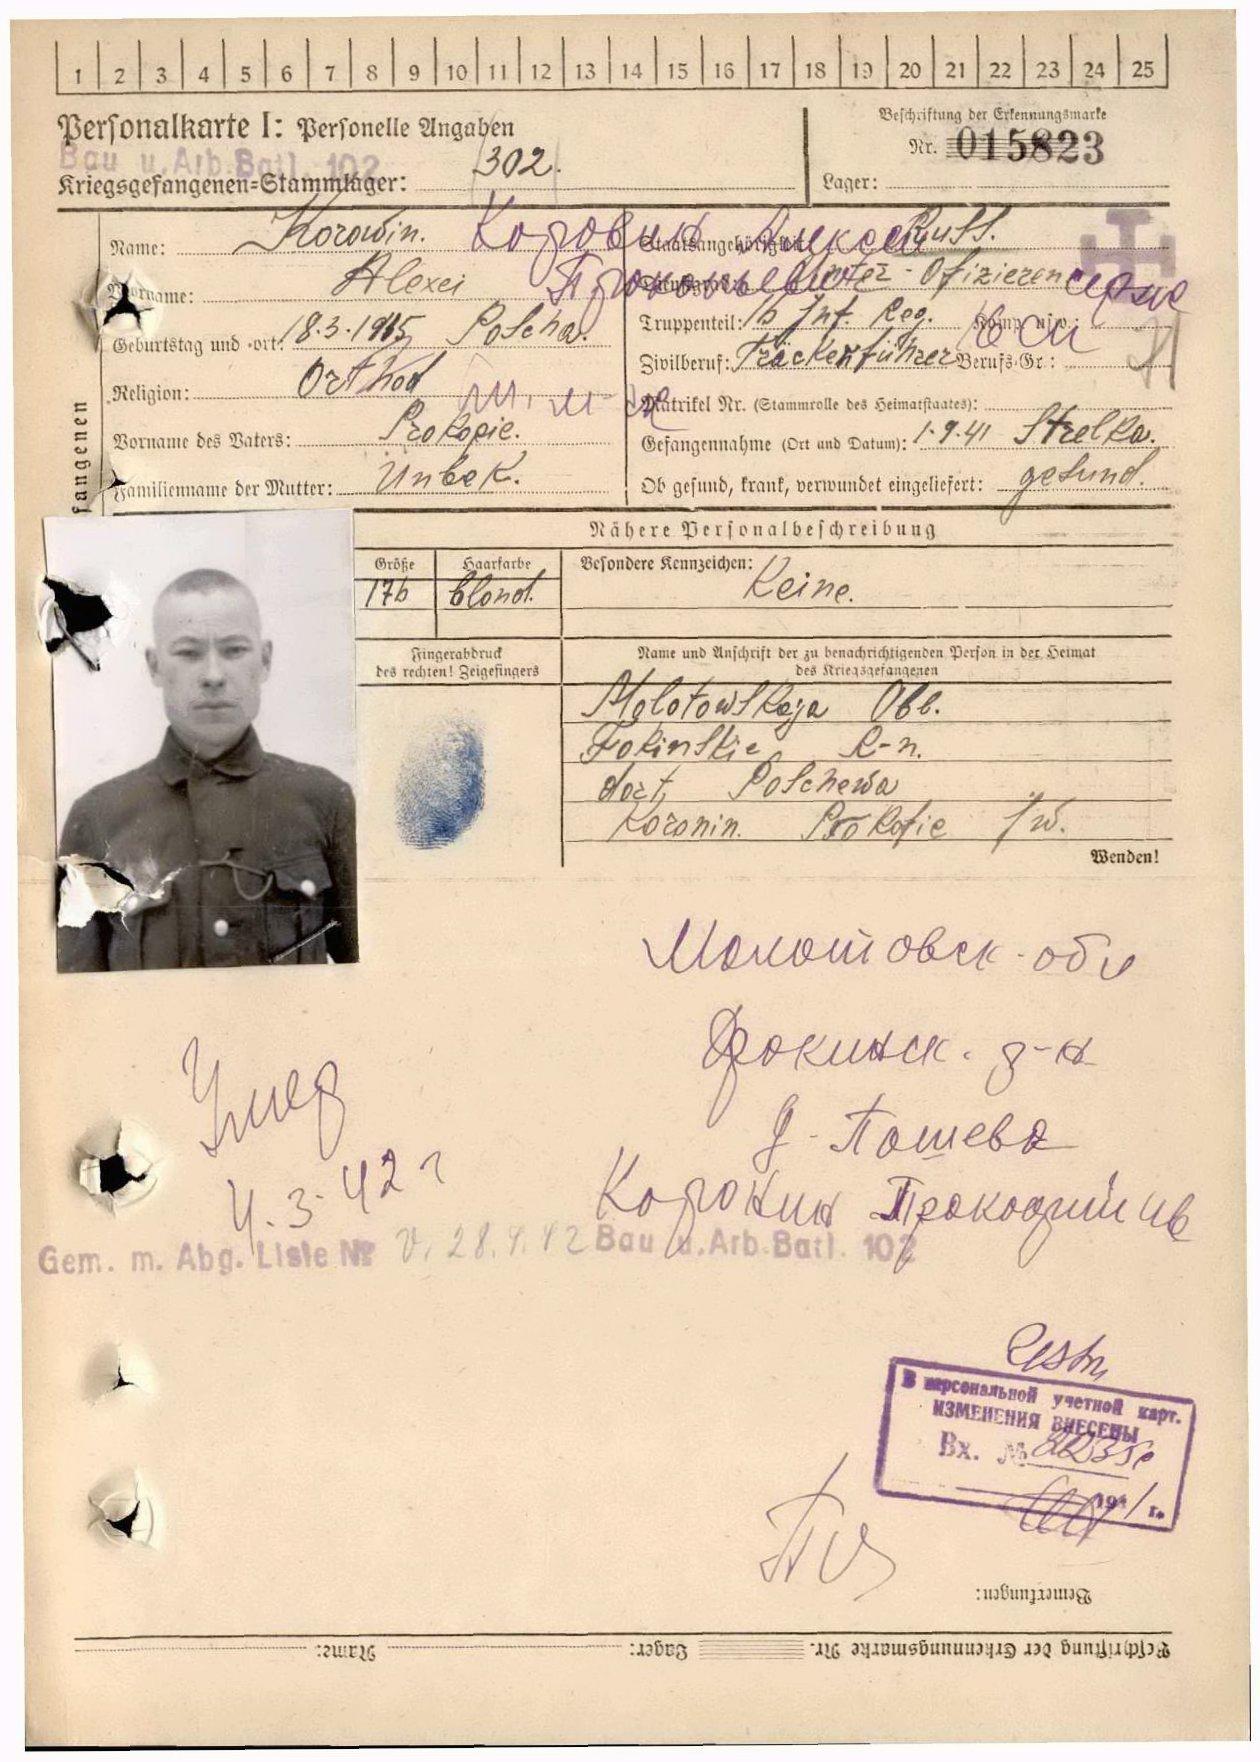 1 2 3 4 5 6 7 8 9 10 11 12 13 14 15 16 17 18 19 20 21 22 23 24 25
Personalkarte I: Personelle Angaben
Beschriftung der Erkennungsmarke
Nr. 015823
Bau u. Arb. Batl. 102
Kriegsgefangenen-Stammlager: 302.
Lager:
Name: Korowin. Коровин Алексей
Staatsangehörigkeit: Russ.
Vorname: Alexei
Unter-Ofizieren
Geburtstag und -ort: 18.3.1915 Poscha.
Truppenteil: 16 Inf. Reg. Komp. usw.:
Zivilberuf: Träckerführer Berufs-Gr.:
Religion: Orthod
Matrikel Nr. (Stammrolle des Heimatstaates):
Vorname des Vaters: Prokopie.
Gefangennahme (Ort und Datum): 1.9.41 Strelka.
Familienname der Mutter: Unbek.
Ob gesund, krank, verwundet eingeliefert: gesund.
fangenen
Nähere Personalbeschreibung
Größe Haarfarbe Besondere Kennzeichen:
176 blond. Keine.
Fingerabdruck
des rechten! Zeigefingers
Name und Anschrift der zu benachrichtigenden Person in der Heimat
des Kriegsgefangenen
Molotowskaja Obl.
Fokinskie R-n.
dort, Poschewa
Koronin. Prokofie Iw.
Wenden!
Молотовск-обл
Фокинск. р-н
д-Пошева
Коронин Прокофий Ив
Умер
4.3.42 г
Gem. m. Abg. Liste № v. 28.4.42 Bau u. Arb. Batl. 102
В персональной учетной карт.
ИЗМЕНЕНИЯ ВНЕСЕНЫ
Вх. №
194 г.
Bemerkungen:
Beschriftung der Erkennungsmarke Nr. Lager: Name: